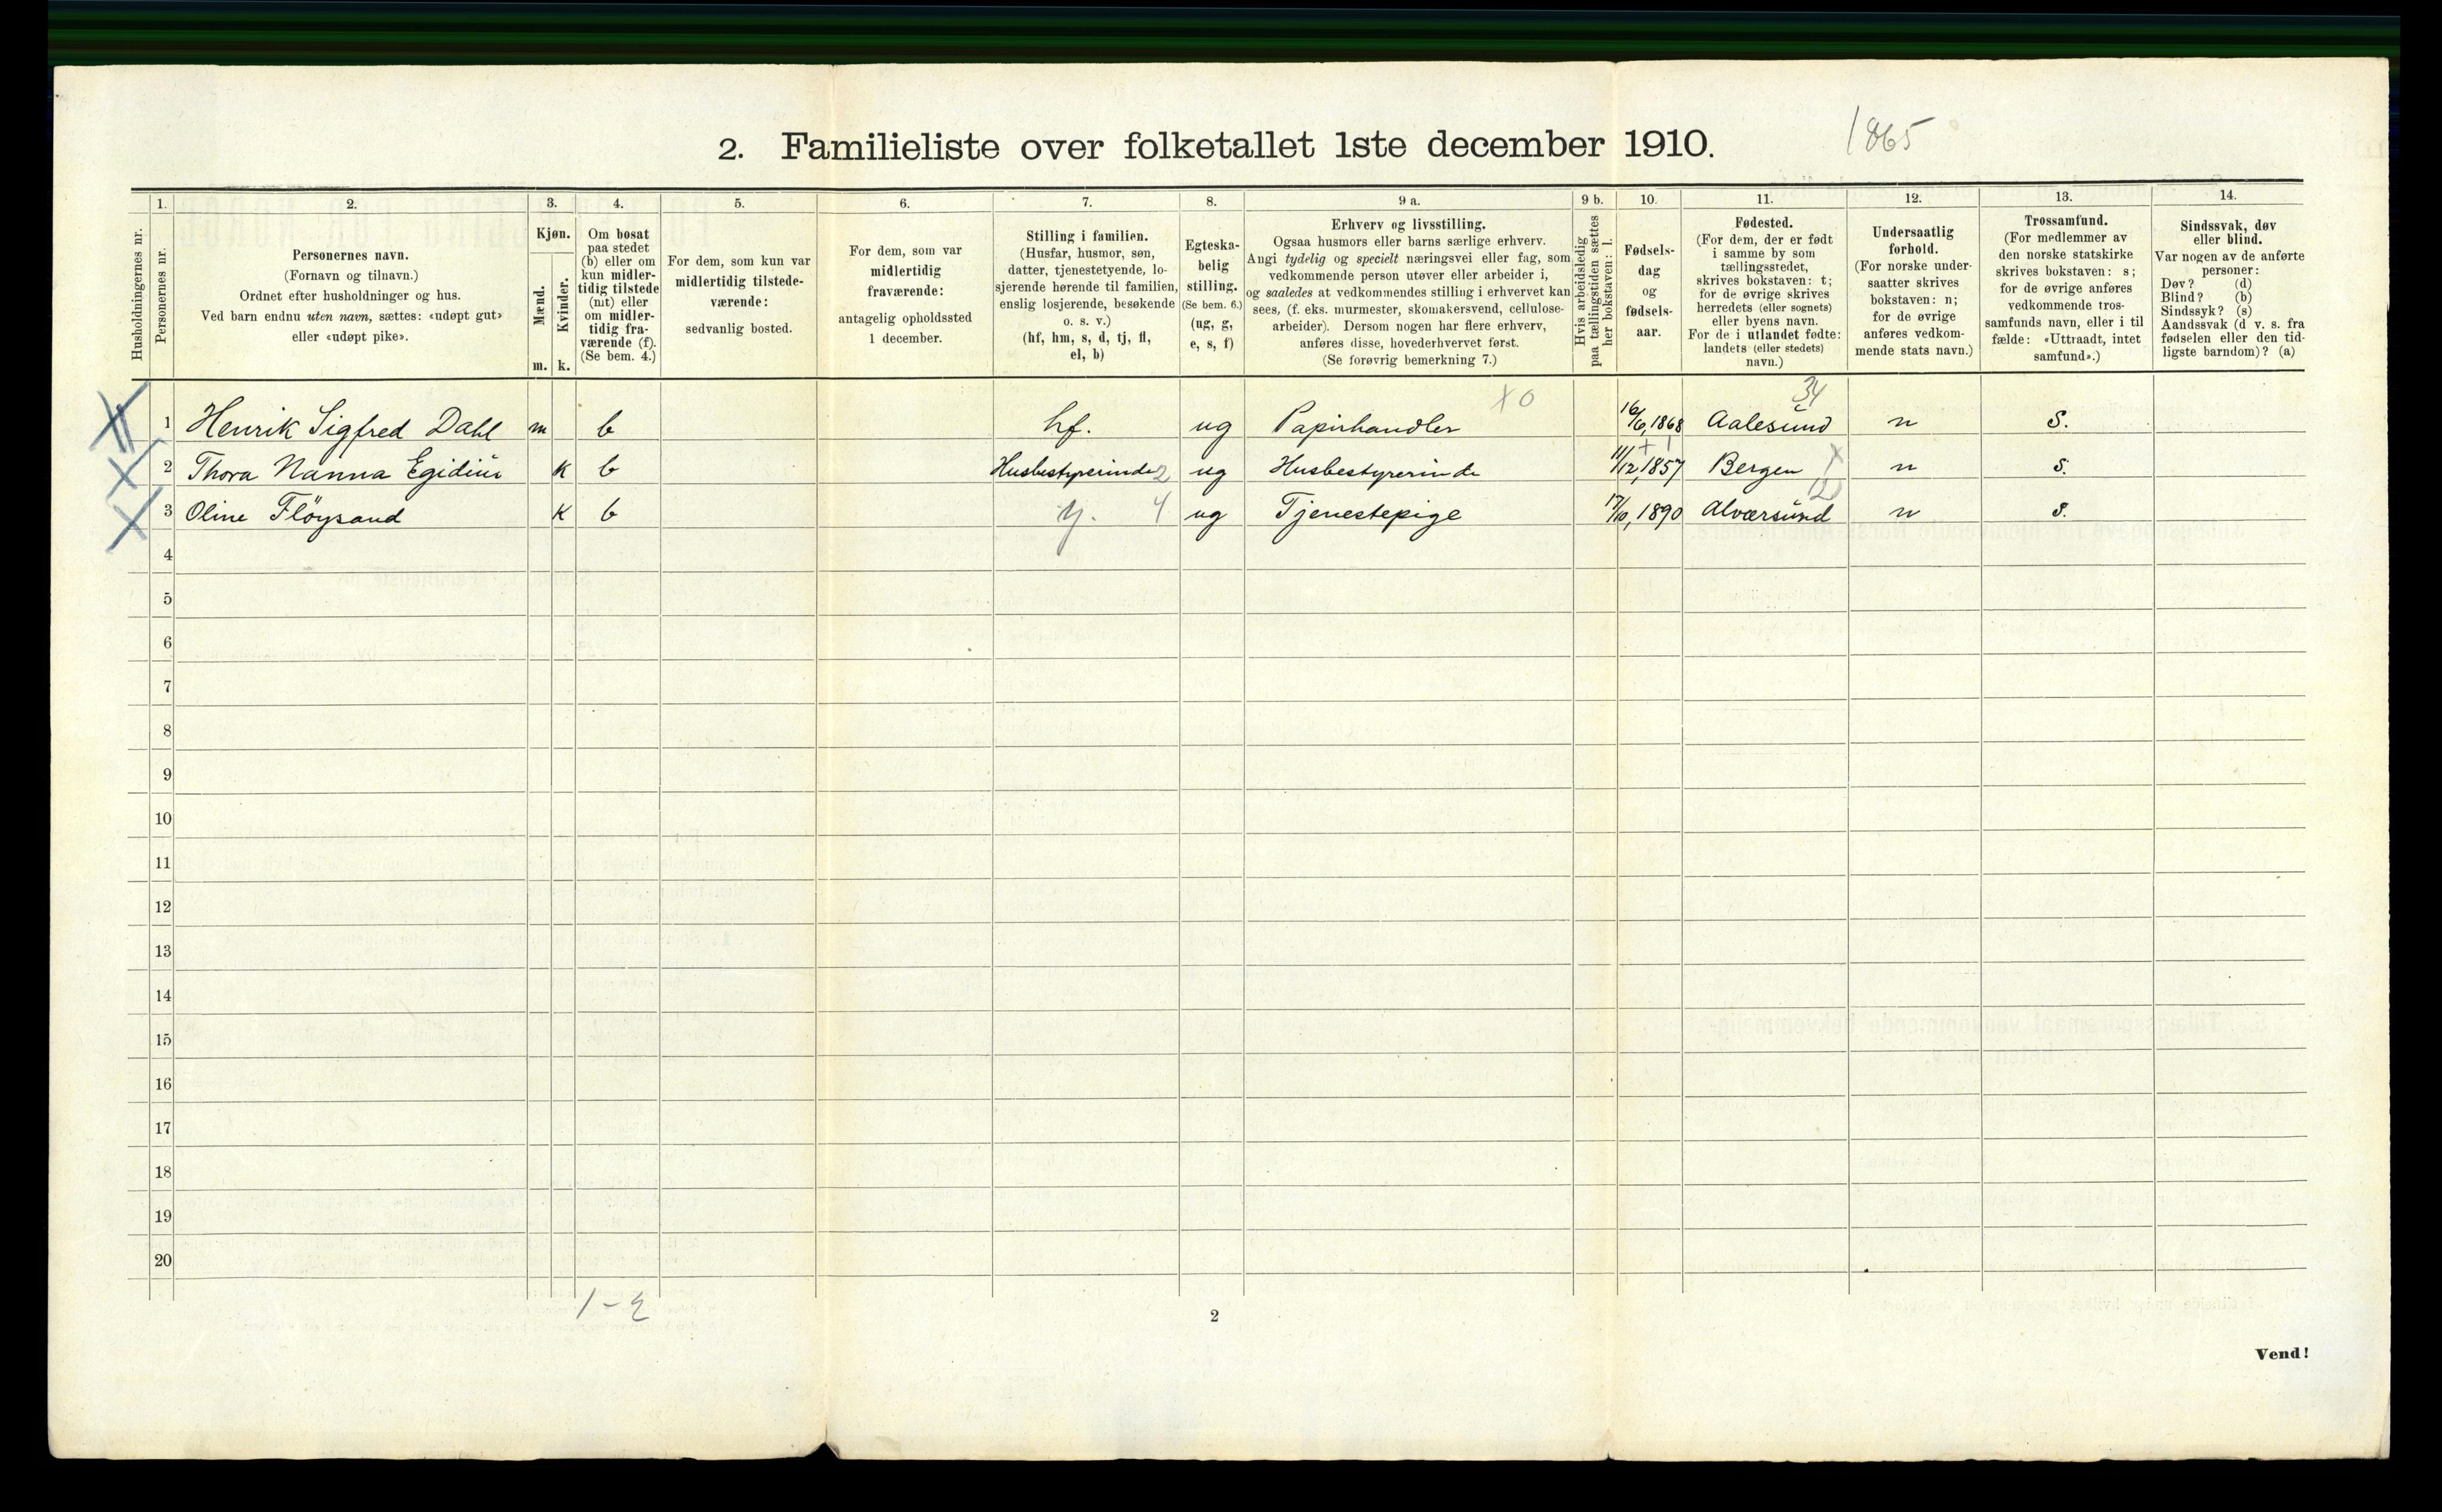 2. Familieliste over folketallet 1ste december 1910.
1865
Husholdningernes nr.
1.
Personernes nr.
2.
Personernes navn.
(Fornavn og tilnavn.)
Ordnet efter husholdninger og hus.
Ved barn endnu uten navn, sættes: «udøpt gut»
eller «udøpt pike».
3.
Kjøn.
Mænd.
m.
Kvinder.
k.
4.
Om bosat
paa stedet
(b) eller om
kun midler-
tidig tilstede
(mt) eller
om midler-
tidig fra-
værende (f).
(Se bem. 4.)
5.
For dem, som kun var
midlertidig tilstede-
værende:
sedvanlig bosted.
6.
For dem, som var
midlertidig
fraværende:
antagelig opholdssted
1 december.
7.
Stilling i familien.
(Husfar, husmor, søn,
datter, tjenestetyende, lo-
sjerende hørende til familien,
enslig losjerende, besøkende
o. s. v.)
(hf, hm, s, d, tj, fl,
el, b)
8.
Egteska-
belig
stilling.
(Se bem. 6.)
(ug, g,
e, s, f)
9 a.
Erhverv og livsstilling.
Ogsaa husmors eller barns særlige erhverv.
Angi tydelig og specielt næringsvei eller fag, som
vedkommende person utøver eller arbeider i,
og saaledes at vedkommendes stilling i erhvervet kan
sees, (f. eks. murmester, skomakersvend, cellulose-
arbeider). Dersom nogen har flere erhverv,
anføres disse, hovederhvervet først.
(Se forøvrig bemerkning 7.)
9 b.
Hvis arbeidsledig
paa tællingstiden sættes
her bokstaven: l.
10.
Fødsels-
dag
og
fødsels-
aar.
11.
Fødested.
(For dem, der er født
i samme by som
tællingsstedet,
skrives bokstaven: t;
for de øvrige skrives
herredets (eller sognets)
eller byens navn.
For de i utlandet fødte:
landets (eller stedets)
navn.)
12.
Undersaatlig
forhold.
(For norske under-
saatter skrives
bokstaven: n;
for de øvrige
anføres vedkom-
mende stats navn.)
13.
Trossamfund.
(For medlemmer av
den norske statskirke
skrives bokstaven: s;
for de øvrige anføres
vedkommende tros-
samfunds navn, eller i til
fælde: «Uttraadt, intet
samfund».)
14.
Sindssvak, døv
eller blind.
Var nogen av de anførte
personer:
Døv? (d)
Blind? (b)
Sindssyk? (s)
Aandssvak (d v. s. fra
fødselen eller den tid-
ligste barndom)? (a)
X0 34
1 Henrik Sigfred Dahl m b hf. ug Papirhandler 16/6, 1868 Aalesund n s.
2 Thora Nanna Egidius K b Husbestyrerinde 2 ug Husbestyrerinde 11/12, 1857 Bergen n s.
3 Oline Fløysand K b tj. 4 ug Tjenestepige 17/10, 1890 Alversund n s.
4
5
6
7
8
9
10
11
12
13
14
15
16
17
18
19
20
1-2
2
Vend!